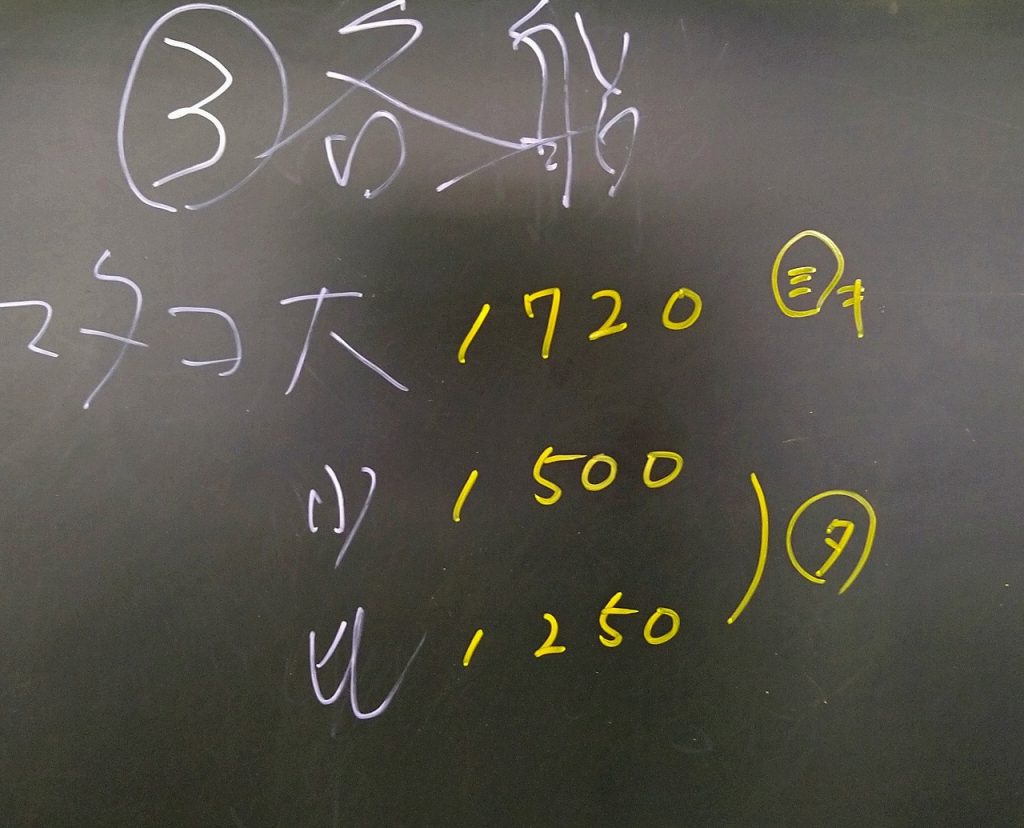 ③ 各能
マタコ大 1720 ㊂キ
小 1500
比 1250 ㋟